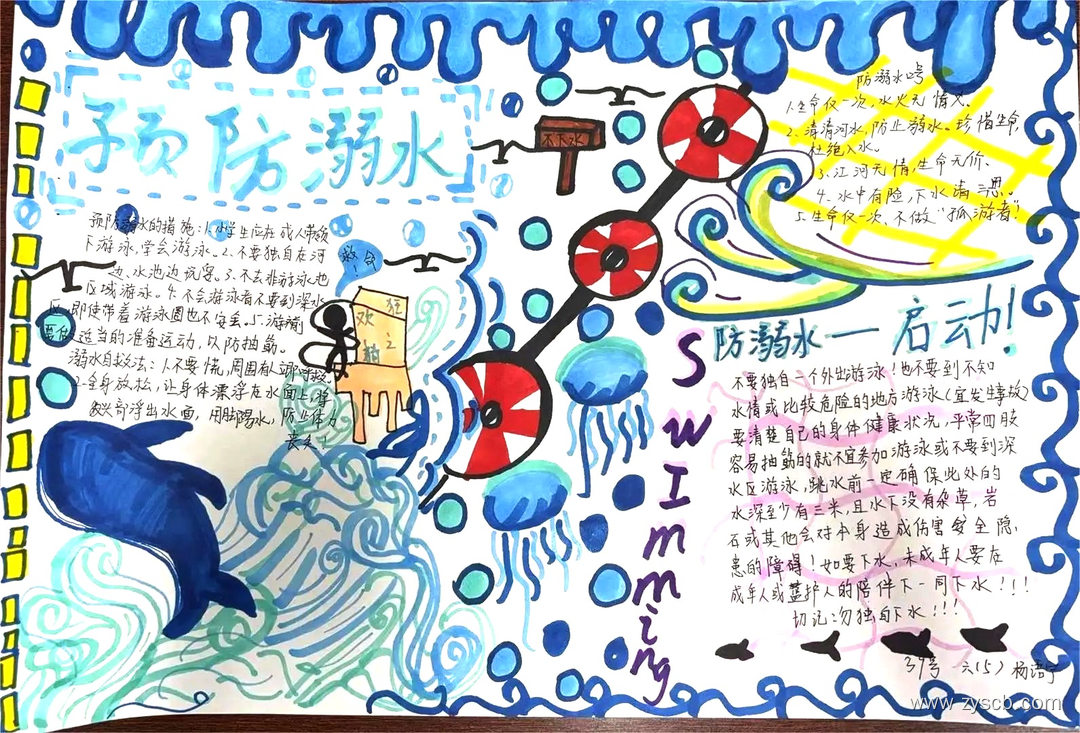 预防溺水
预防溺水的措施:1.小学生应在成人带领
下游泳,学会游泳。2.不要独自在河
边、水池边玩耍。3.不去非游泳池
区域游泳。4.不会游泳者不要到深水
区,即使带着游泳圈也不安全。5.游前
要做适当的准备运动,以防抽筋。
溺水自救法:1.不要慌,周围有人
2.全身放松,让身体漂浮在水面上,将
头部浮出水面,用脚踢水,防止体力
丧失!
救命!
不下水
防溺水口号
1.生命仅一次,水火无情义。
2.清清河水,防止溺水。珍惜生命,
杜绝入水。
3.江河无情,生命无价。
4.水中有险,下水请三思。
5.生命仅一次、不做“孤游者”!
防溺水——启动!
不要独自一个外出游泳!也不要到不知
水情或比较危险的地方游泳(宜发生事故)
要清楚自己的身体健康状况,平常四肢
容易抽筋的就不宜参加游泳或不要到深
水区游泳,跳水前一定确保此处的
水深至少有三米,且水下没有杂草,岩
石或其他会对本身造成伤害安全隐
患的障碍!如要下水,未成年人要在
成年人或监护人的陪伴下一同下水!!!
切记:勿独自下水!!!
Swimming
39号 六(5) 杨语宁
www.zyscb.com